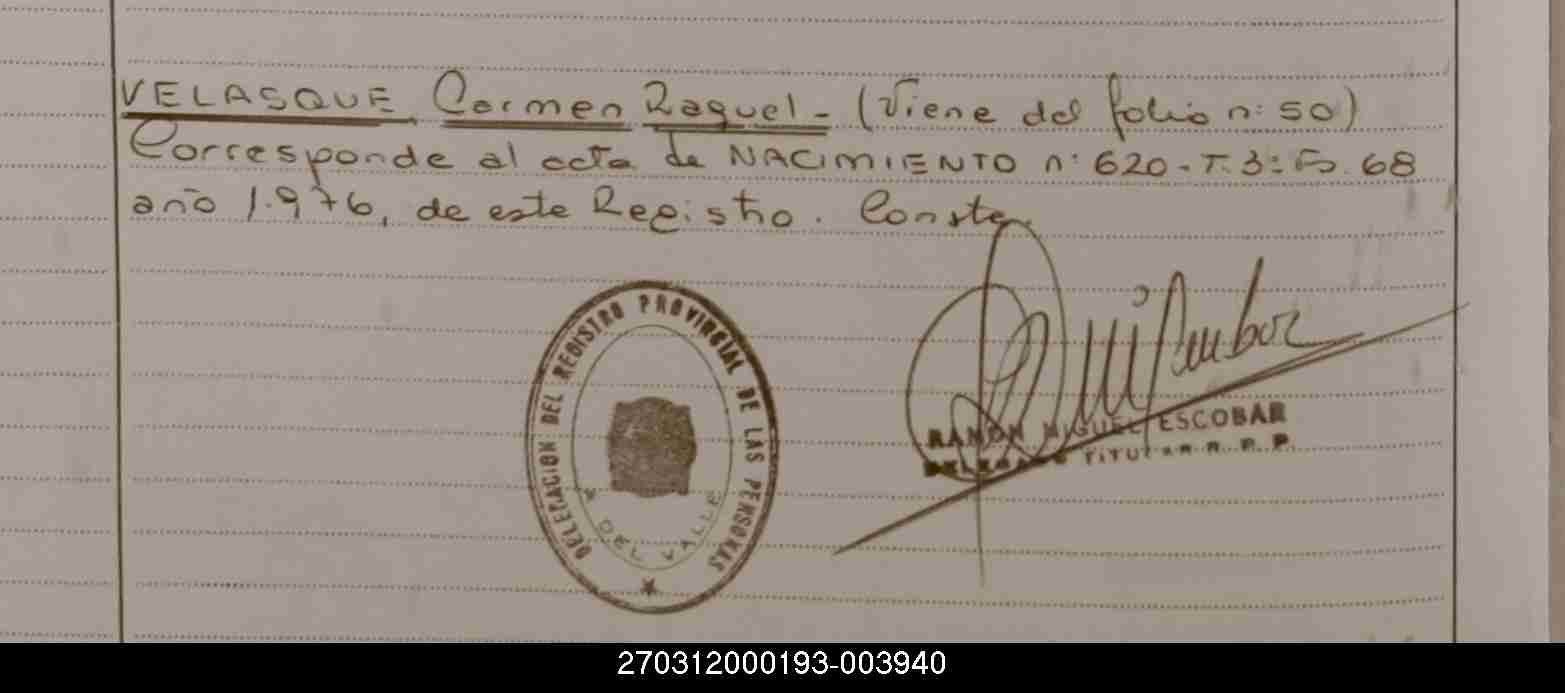 VELASQUE Carmen Raquel - (Viene del folio n: 50)
Corresponde al acta de NACIMIENTO n: 620 - T. 3: Fo. 68
año 1.976, de este Registro. Conste.
DELEGACION DEL REGISTRO PROVINCIAL DE LAS PERSONAS
DEL VALLE
RAMON MIGUEL ESCOBAR
DELEGADO TITULAR R. P. P.
270312000193-003940